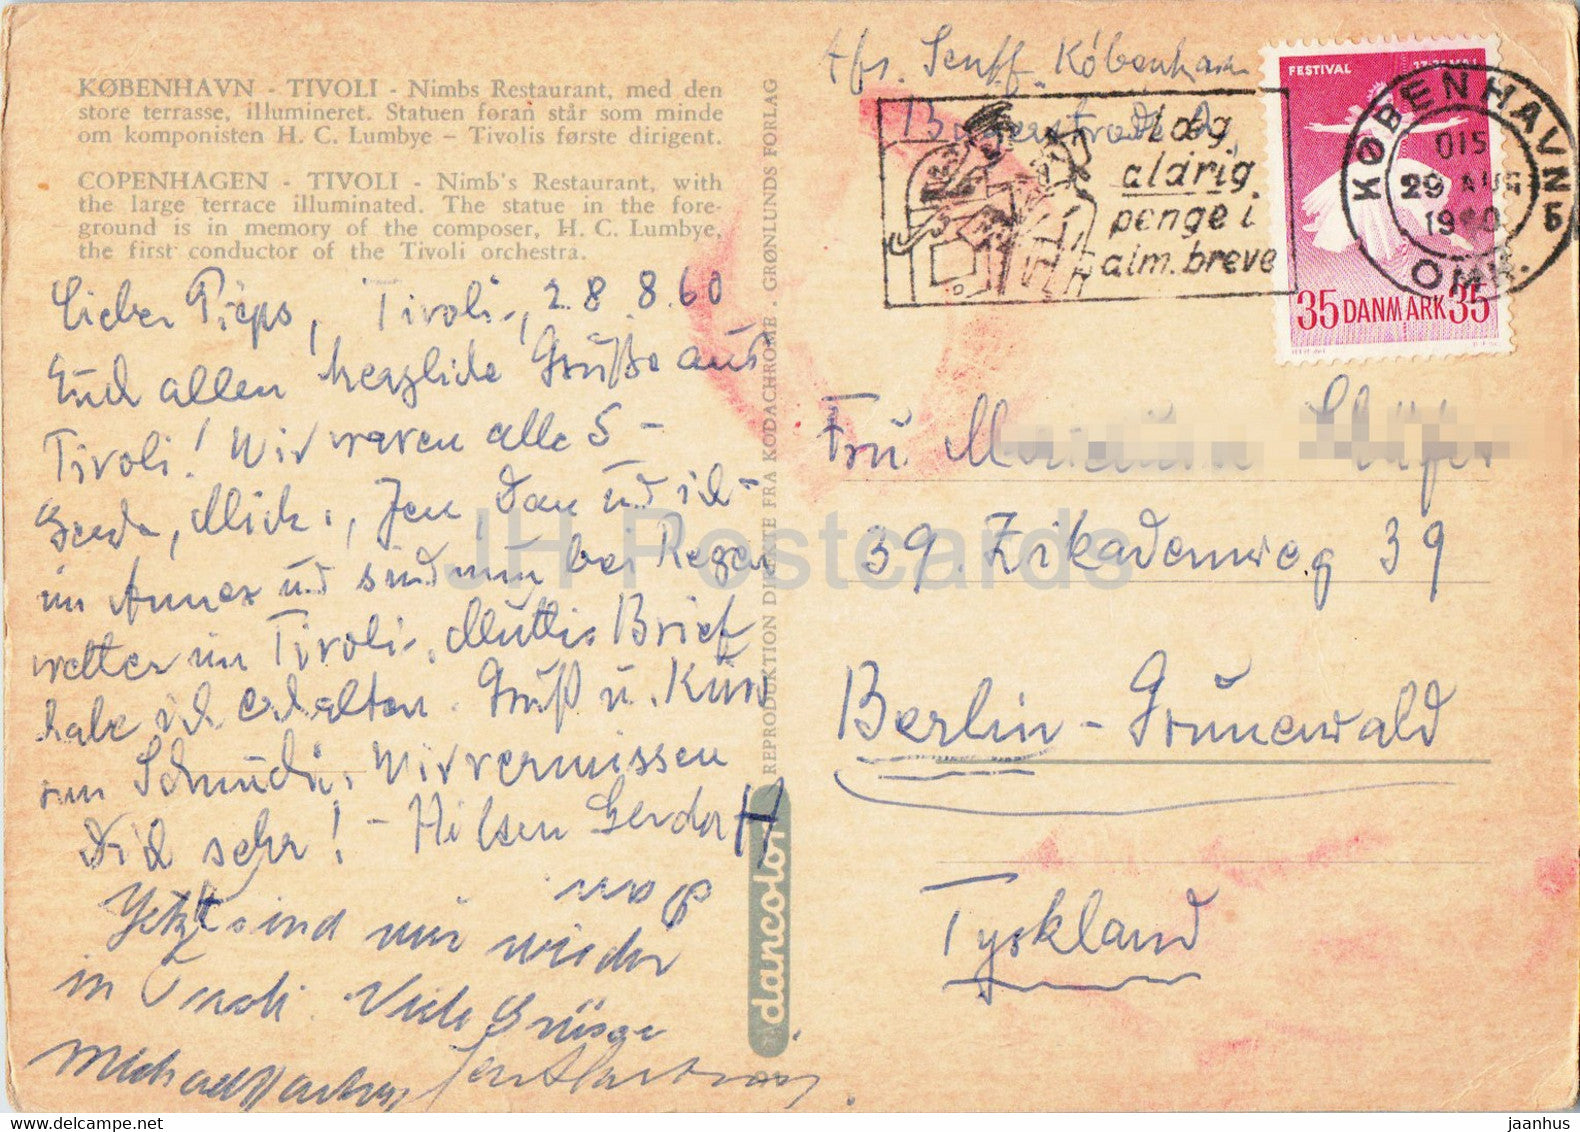 KØBENHAVN - TIVOLI - Nimbs Restaurant, med den
store terrasse, illumineret. Statuen foran står som minde
om komponisten H. C. Lumbye – Tivolis første dirigent.
COPENHAGEN - TIVOLI - Nimb's Restaurant, with
the large terrace illuminated. The statue in the fore-
ground is in memory of the composer, H. C. Lumbye,
the first conductor of the Tivoli orchestra.
Lieber Pieps, Tivoli, 28.8.60
Euch allen herzliche Grüße aus
Tivoli! Wir waren alle 5 -
Gerda, Mich., Jen, Dan und ich -
im Annex und sind nun bei Regen
wetter im Tivoli. Muttis Brief
habe ich erhalten. Gruß u. Kuss
Wir vermissen
Dich sehr! - Hilsen Gerda H
Jetzt sind wir wieder
in Tivoli. Viele Grüsse
Michael
REPRODUKTION DIREKTE FRA KODACHROME . GRØNLUNDS FORLAG
dancolor
Afs. Senff. København
Læg
aldrig
penge i
alm. breve
FESTIVAL
35 DANMARK 35
KØBENHAVN
OMK.
29 AUG
Fru
39. Zikadenweg 39
Berlin - Grunewald
Tyskland
JH Postcards
jaanhus
www.delcampe.net